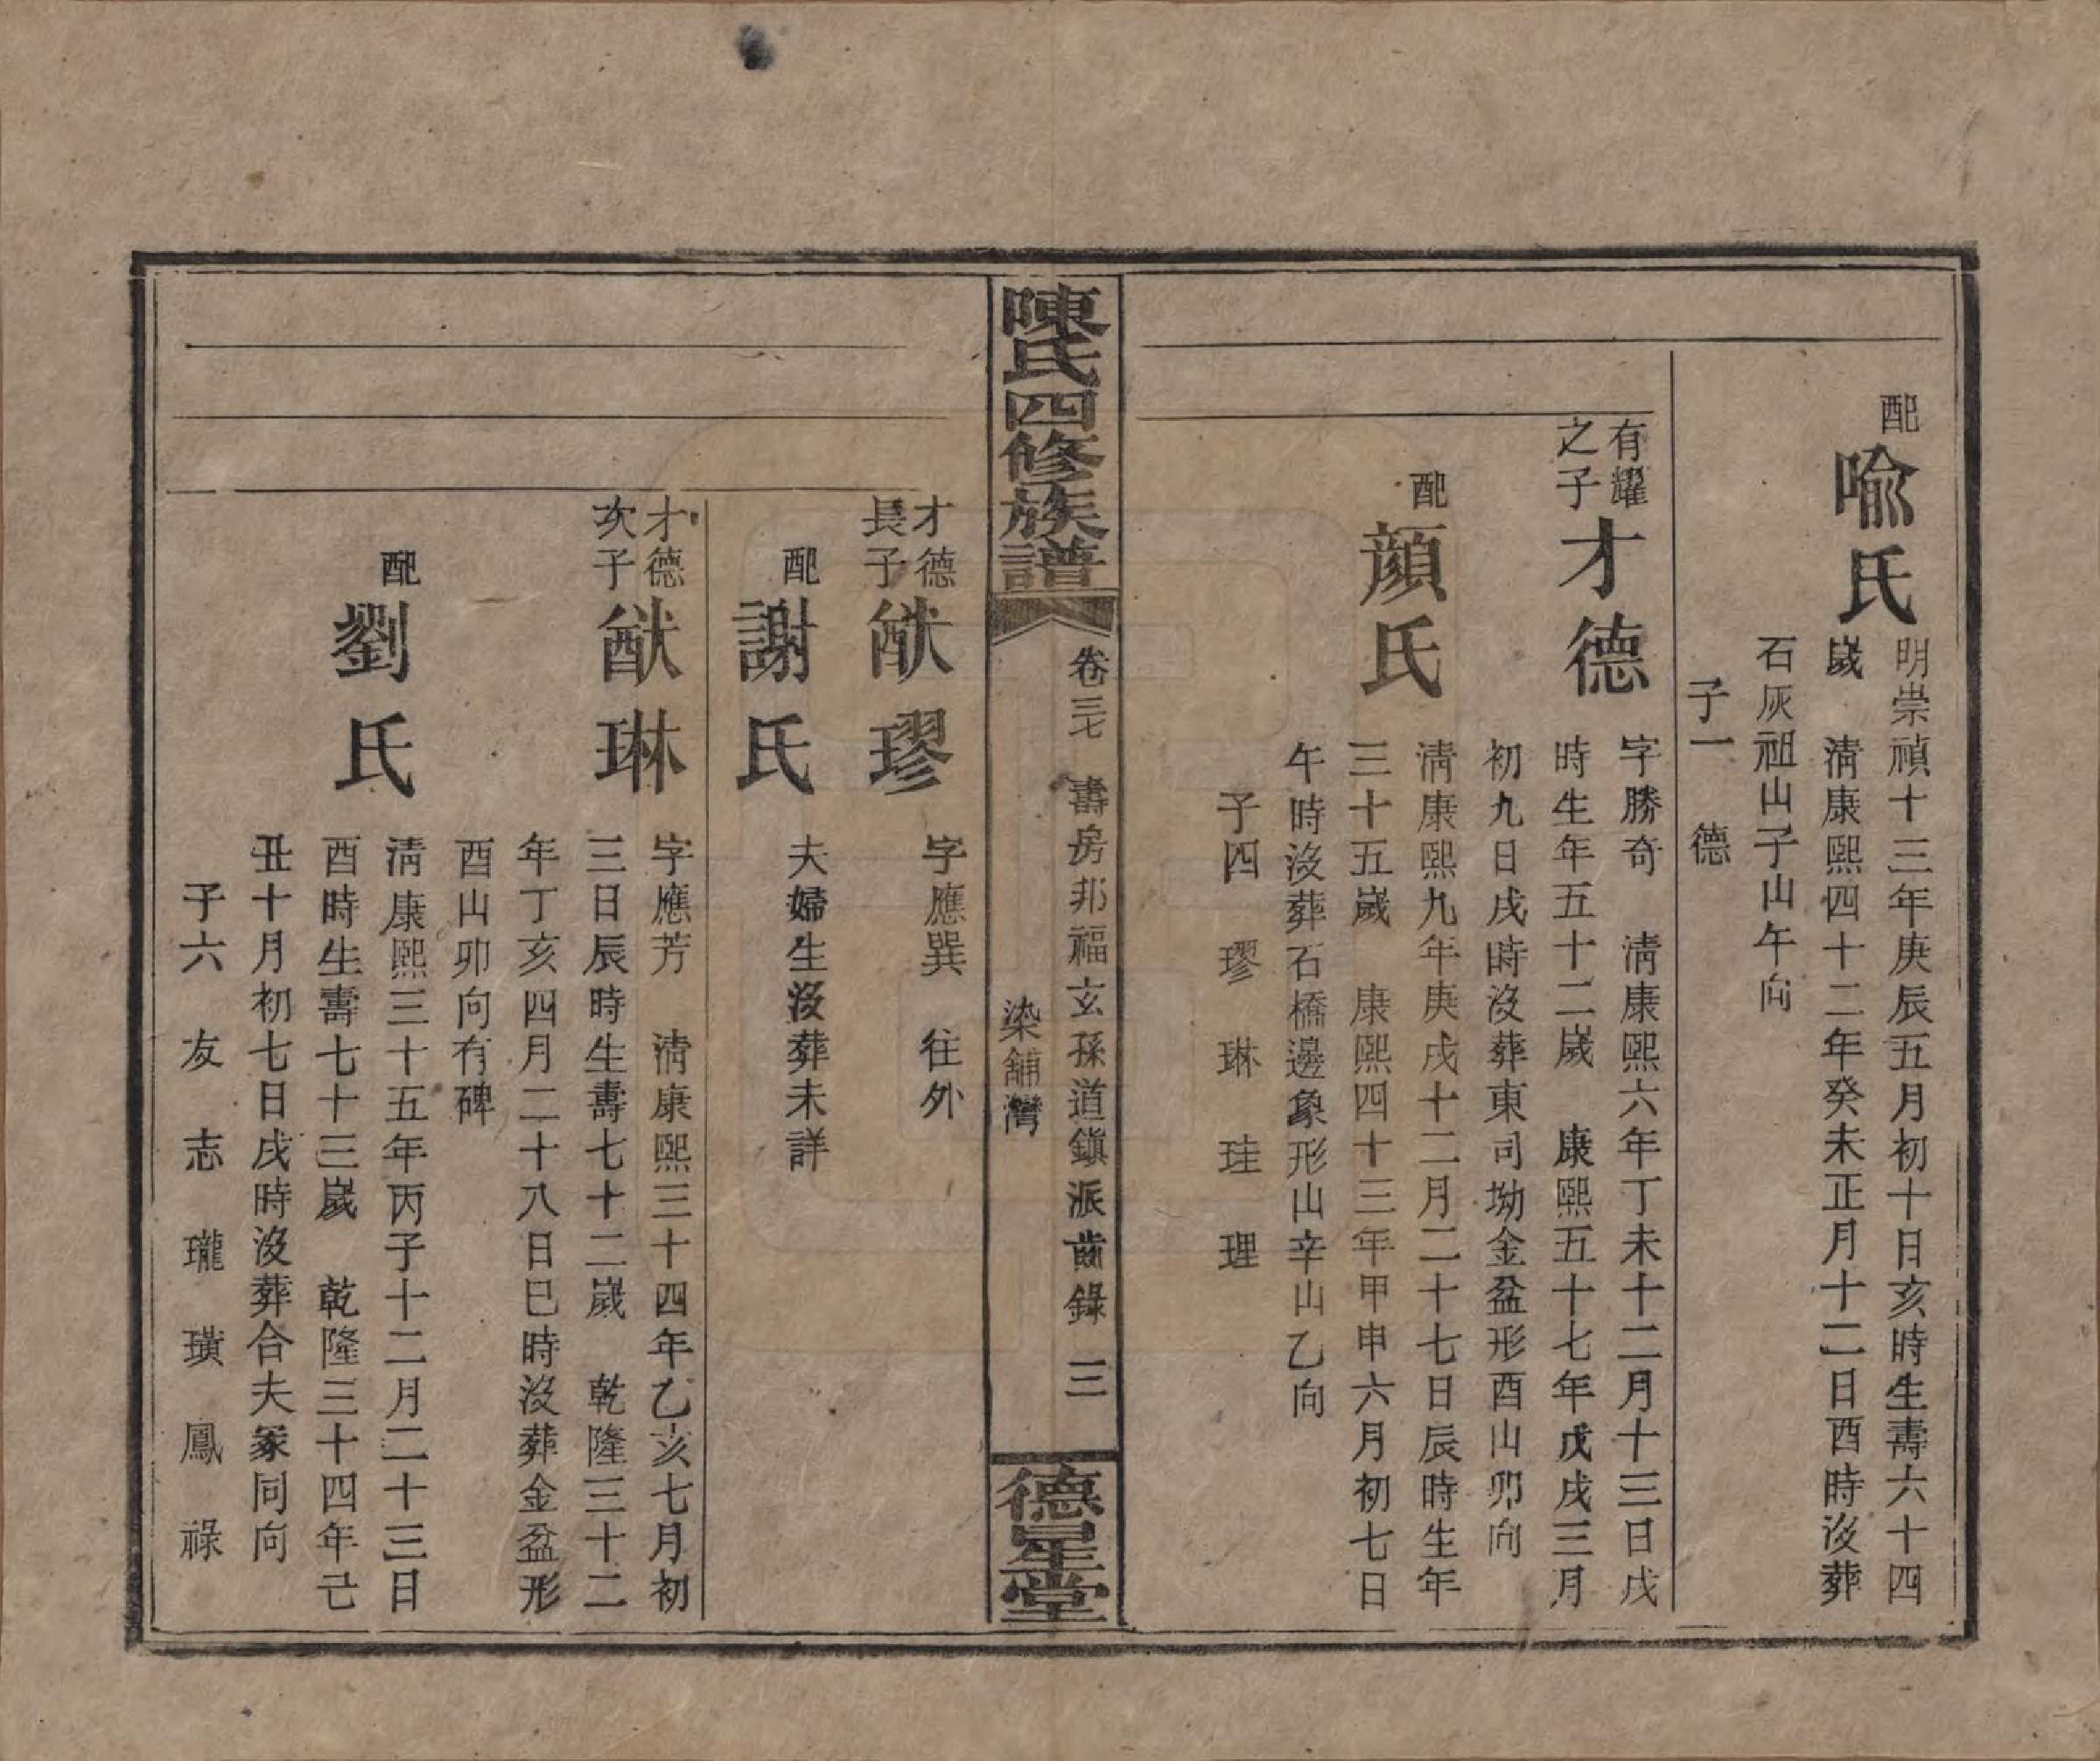 配
喩氏
明崇禎十三年庚辰五月初十日亥時生壽六十四
歲 淸康熙四十二年癸未正月十二日酉時沒葬
石灰祖山子山午向
子一 德
有耀
之子
才德
字勝奇 淸康熙六年丁未十二月十三日戌
時生年五十二歲 康熙五十七年戊戌三月
初九日戌時沒葬東司坳金盆形酉山卯向
配
顔氏
淸康熙九年庚戌十二月二十七日辰時生年
三十五歲 康熙四十三年甲申六月初七日
午時沒葬石橋邊象形山辛山乙向
子四 璆 琳 珪 理
陳氏四修族譜
卷三七 壽房邦福玄孫道鎭派齒錄 三
染舖灣
德星堂
才德
長子
猷璆
字應巽 往外
配
謝氏
夫婦生沒葬未詳
才德
次子
猷琳
字應芳 淸康熙三十四年乙亥七月初
三日辰時生壽七十二歲 乾隆三十二
年丁亥四月二十八日巳時沒葬金盆形
酉山卯向有碑
配
劉氏
淸康熙三十五年丙子十二月二十三日
酉時生壽七十三歲 乾隆三十四年己
丑十月初七日戌時沒葬合夫冢同向
子六 友 志 瓏 璜 鳳 祿